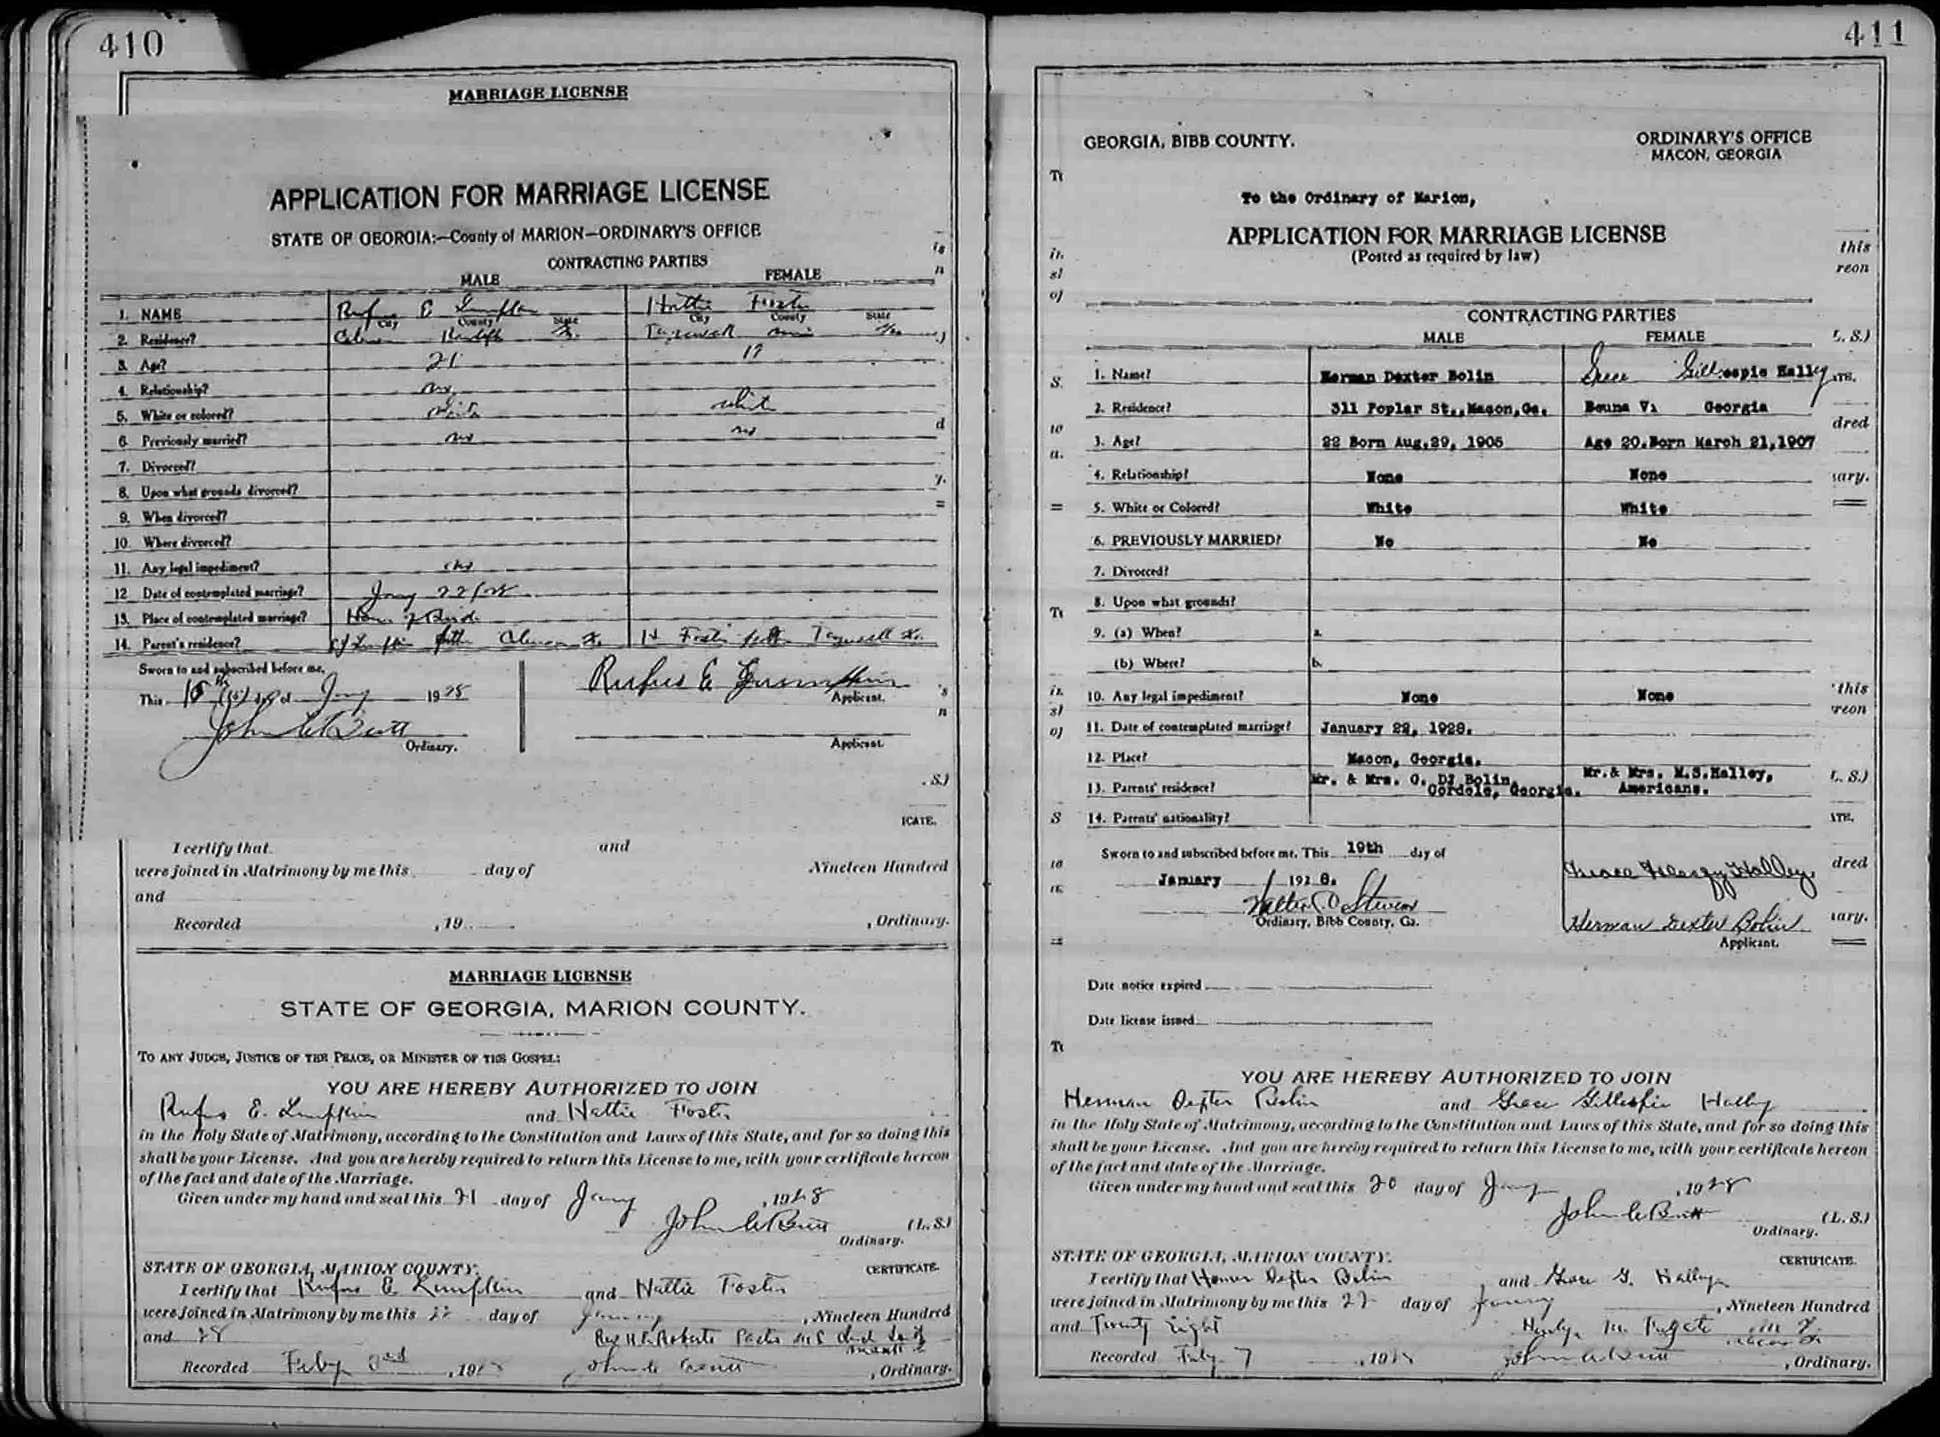 410
MARRIAGE LICENSE
APPLICATION FOR MARRIAGE LICENSE
STATE OF GEORGIA:—County of MARION—ORDINARY'S OFFICE
CONTRACTING PARTIES
MALE FEMALE
1. NAME Rufus E Lumpkin Hattie Foster
City County State City County State
2. Residence? Coleman Randolph Ga. Tazewell
3. Age? 21 19
4. Relationship? no
5. White or colored? White White
6. Previously married? no no
7. Divorced?
8. Upon what grounds divorced?
9. When divorced?
10. Where divorced?
11. Any legal impediment? no
12 Date of contemplated marriage? Jany 22/28
13. Place of contemplated marriage? Home of Bride
14. Parent's residence? Lumpkin father Coleman Ga. H Foster father Tazewell Ga.
Sworn to and subscribed before me,
This 15th day of Jany 1928 Rufus E Lumpkin
Applicant.
John C Butt
Ordinary.
Applicant.
. S.)
ICATE.
I certify that and
were joined in Matrimony by me this day of Nineteen Hundred
and
Recorded , 19 , Ordinary.
MARRIAGE LICENSE
STATE OF GEORGIA, MARION COUNTY.
TO ANY JUDGE, JUSTICE OF THE PEACE, OR MINISTER OF THE GOSPEL:
YOU ARE HEREBY AUTHORIZED TO JOIN
Rufus E. Lumpkin and Hattie Foster
in the Holy State of Matrimony, according to the Constitution and Laws of this State, and for so doing this
shall be your License. And you are hereby required to return this License to me, with your certificate hereon
of the fact and date of the Marriage.
Given under my hand and seal this 21 day of Jany , 1928
John C Butt (L. S.)
Ordinary.
STATE OF GEORGIA, MARION COUNTY. CERTIFICATE.
I certify that Rufus E. Lumpkin and Hattie Foster
were joined in Matrimony by me this 22 day of January , Nineteen Hundred
and 28 Rev H. C. Roberts Pastor M E
Recorded Feby 3rd , 1928 John C Butt , Ordinary.
411
GEORGIA, BIBB COUNTY. ORDINARY'S OFFICE
MACON, GEORGIA
To the Ordinary of Marion,
APPLICATION FOR MARRIAGE LICENSE
(Posted as required by law)
this
reon
CONTRACTING PARTIES
MALE FEMALE
1. Name? Herman Dexter Bolin Grace Gillespie Halley
2. Residence? 311 Poplar St.,Macon,Ga. Beuna Vi Georgia
3. Age? 22 Born Aug.29, 1905 Age 20.Born March 21,1907
4. Relationship? None None
5. White or Colored? White White
6. PREVIOUSLY MARRIED? No No
7. Divorced?
8. Upon what grounds?
9. (a) When? a.
(b) Where? b.
10. Any legal impediment? None None
11. Date of contemplated marriage? January 22, 1928.
12. Place? Macon, Georgia.
13. Parents' residence? Mr. & Mrs. G. DJ Bolin, Cordele, Georgia. Mr.& Mrs. M.S.Halley, Americans.
14. Parents' nationality?
Sworn to and subscribed before me. This 19th day of
January 1928. Grace Halley
Walter C Stevens
Ordinary, Bibb County, Ga. Herman Dexter Bolin
Applicant.
Date notice expired
Date license issued
YOU ARE HEREBY AUTHORIZED TO JOIN
Herman Dexter Bolin and Grace Gillespie Halley
in the Holy State of Matrimony, according to the Constitution and Laws of this State, and for so doing this
shall be your License. And you are hereby required to return this License to me, with your certificate hereon
of the fact and date of the Marriage.
Given under my hand and seal this 20 day of Jany , 1928
John C Butt (L. S.)
Ordinary.
STATE OF GEORGIA, MARION COUNTY. CERTIFICATE.
I certify that Homer Dexter Bolin and Grace G. Halley
were joined in Matrimony by me this 22 day of January , Nineteen Hundred
and Twenty Eight M. Fugate
Recorded Feby 7 , 1928 John C Butt , Ordinary.